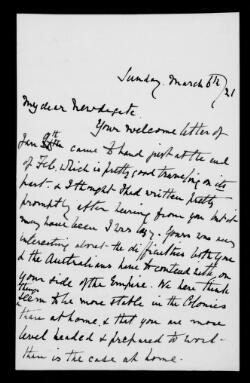 Sunday. March 6th/21
My dear Newdegate.
Your welcome letter of
Jan 9th came to hand just at the end
of Feb. which is pretty good travelling on its
part. & I thought I had written pretty
promptly after hearing from you but
may have been I was lazy. Yours was very
interesting about the difficulties both you
& the Australians have to contend with, on
your side of the Empire. We here think
things seem to be more stable in the Colonies
than at home, & that you are more
level headed & prepared to work
than is the case at home.